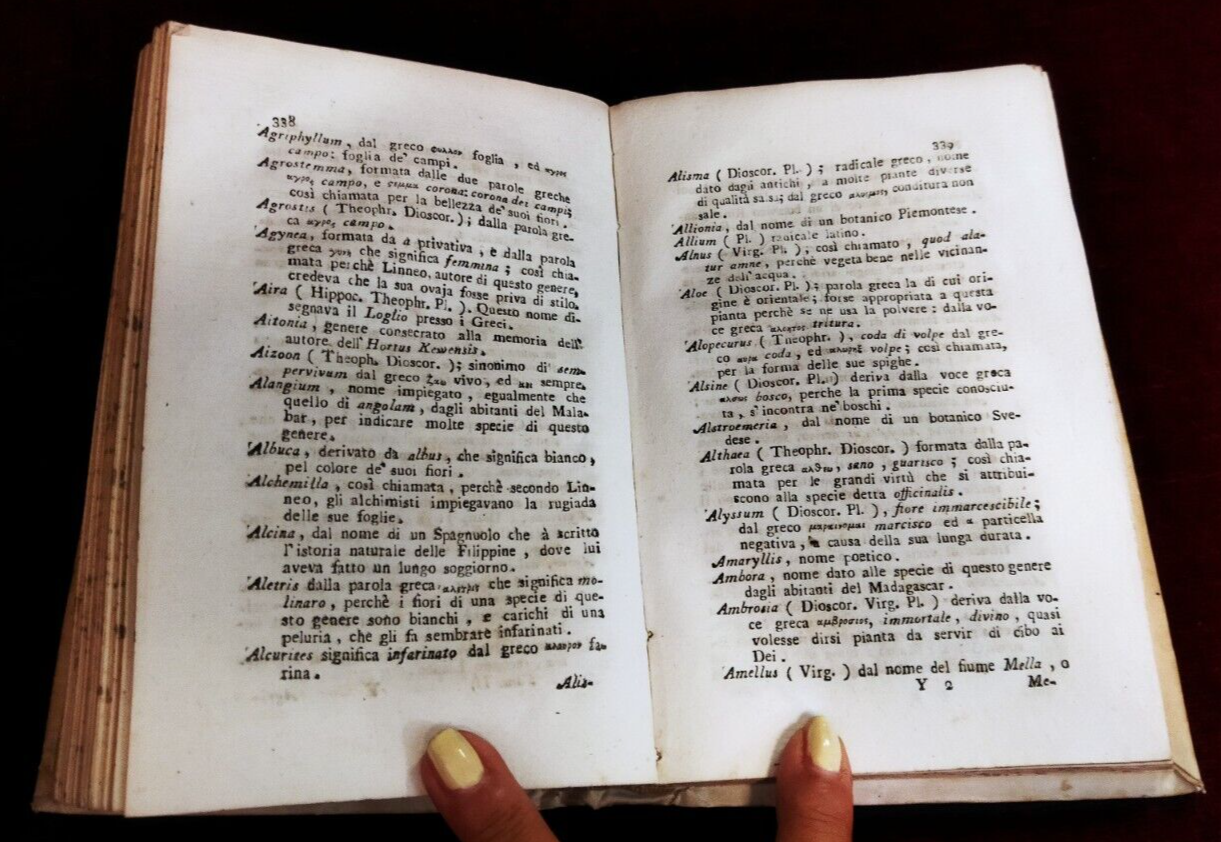 338
Agriphyllum, dal greco φυλλον foglia, ed αγρος
campo: foglia de' campi.
Agrostemma, formata dalle due parole greche
αγρος campo, e στεμμα corona: corona dei campi;
così chiamata per la bellezza de' suoi fiori.
Agrostis ( Theophr. Dioscor. ); dalla parola gre-
ca αγρος campo.
Agynea, formata da a privativa, e dalla parola
greca γυνη che significa femmina; così chia-
mata perchè Linneo, autore di questo genere,
credeva che la sua ovaja fosse priva di stilo.
Aira ( Hippoc. Theophr. Pl. ). Questo nome di-
segnava il Loglio presso i Greci.
Aitonia, genere consecrato alla memoria dell'
autore dell' Hortus Kewensis.
Aizoon ( Theoph. Dioscor. ); sinonimo di sem-
pervivum dal greco ζαω vivo, ed sempre.
Alangium, nome impiegato, egualmente che
quello di angolam, dagli abitanti del Mala-
bar, per indicare molte specie di questo
genere.
Albuca, derivato da albus, che significa bianco,
pel colore de' suoi fiori.
Alchemilla, così chiamata, perchè secondo Lin-
neo, gli alchimisti impiegavano la rugiada
delle sue foglie.
Alcina, dal nome di un Spagnuolo che à scritto
l'istoria naturale delle Filippine, dove lui
aveva fatto un lungo soggiorno.
Aletris dalla parola greca che significa mo-
linaro, perchè i fiori di una specie di que-
sto genere sono bianchi, e carichi di una
peluria, che gli fa sembrare infarinati.
Alcurites significa infarinato dal greco αλευρον fa-
rina.
Alis-
339
Alisma ( Dioscor. Pl. ); radicale greco, nome
dato dagli antichi, a molte piante diverse
di qualità salsa; dal greco conditura non
sale.
Allionia, dal nome di un botanico Piemontese.
Allium ( Pl. ) radicale latino.
Alnus ( Virg. Pl. ); così chiamato, quod ala-
tur amne, perchè vegeta bene nelle vicinan-
ze dell'acqua.
Aloe ( Dioscor. Pl. ); parola greca la di cui ori-
gine è orientale; forse appropriata a questa
pianta perchè se ne usa la polvere: dalla vo-
ce greca tritura.
Alopecurus ( Theophr. ), coda di volpe dal gre-
co ουρα coda, ed αλωπηξ volpe; così chiamata,
per la forma delle sue spighe.
Alsine ( Dioscor. Pl. ) deriva dalla voce greca
αλσος bosco, perchè la prima specie conosciu-
ta, s'incontra ne' boschi.
Alstroemeria, dal nome di un botanico Sve-
dese.
Althaea ( Theophr. Dioscor. ) formata dalla pa-
rola greca αλθεω, sano, guarisco; così chia-
mata per le grandi virtù che si attribui-
scono alla specie detta officinalis.
Alyssum ( Dioscor. Pl. ), fiore immarcescibile;
dal greco μαραινομαι marcisco ed α particella
negativa, a causa della sua lunga durata.
Amaryllis, nome poetico.
Ambora, nome dato alle specie di questo genere
dagli abitanti del Madagascar.
Ambrosia ( Dioscor. Virg. Pl. ) deriva dalla vo-
ce greca αμβροσιος, immortale, divino, quasi
volesse dirsi pianta da servir di cibo ai
Dei.
Amellus ( Virg. ) dal nome del fiume Mella, o
Y 2 Me-